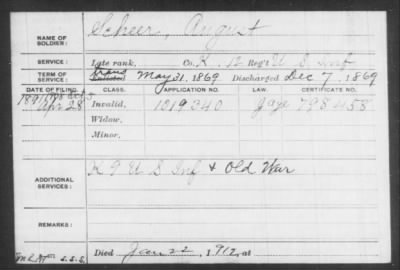 NAME OF SOLDIER: Scheer, August
SERVICE: Late rank, Co. K, 12 Reg't U S Inf
TERM OF SERVICE: trans May 31, 1869 Discharged Dec 7, 1869
DATE OF FILING. CLASS. APPLICATION NO. LAW. CERTIFICATE NO.
1891 Apr 28 Invalid, 1019340 798458
Widow,
Minor,
ADDITIONAL SERVICES: K 9 U S Inf & Old War
REMARKS:
Died Jan 22, 1912, at